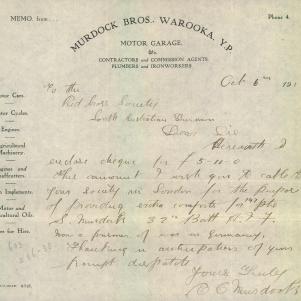 MEMO. from
Phone 4.
MURDOCK BROS., WAROOKA, Y.P.
MOTOR GARAGE.
&c.
CONTRACTORS and COMMISSION AGENTS.
PLUMBERS and IRONWORKERS.
Oct 6th 191
To the
Red Cross Society
South Australian Division
Dear Sir
Herewith I
enclose cheque for £ 5-10-0
This amount I wish you to cable to
your society in London for the purpose
of providing extra comforts for
S. Murdock 32nd Batt A.I.F.
Now a prisoner of war in Germany,
Thanking in anticipation of your
prompt despatch
Yours Truly
Murdock
Motor Cars.
Motor Cycles
Engines.
Agricultural
Machinery.
Engines and
Implements.
Motor and
Agricultural Oils.
for Hire.